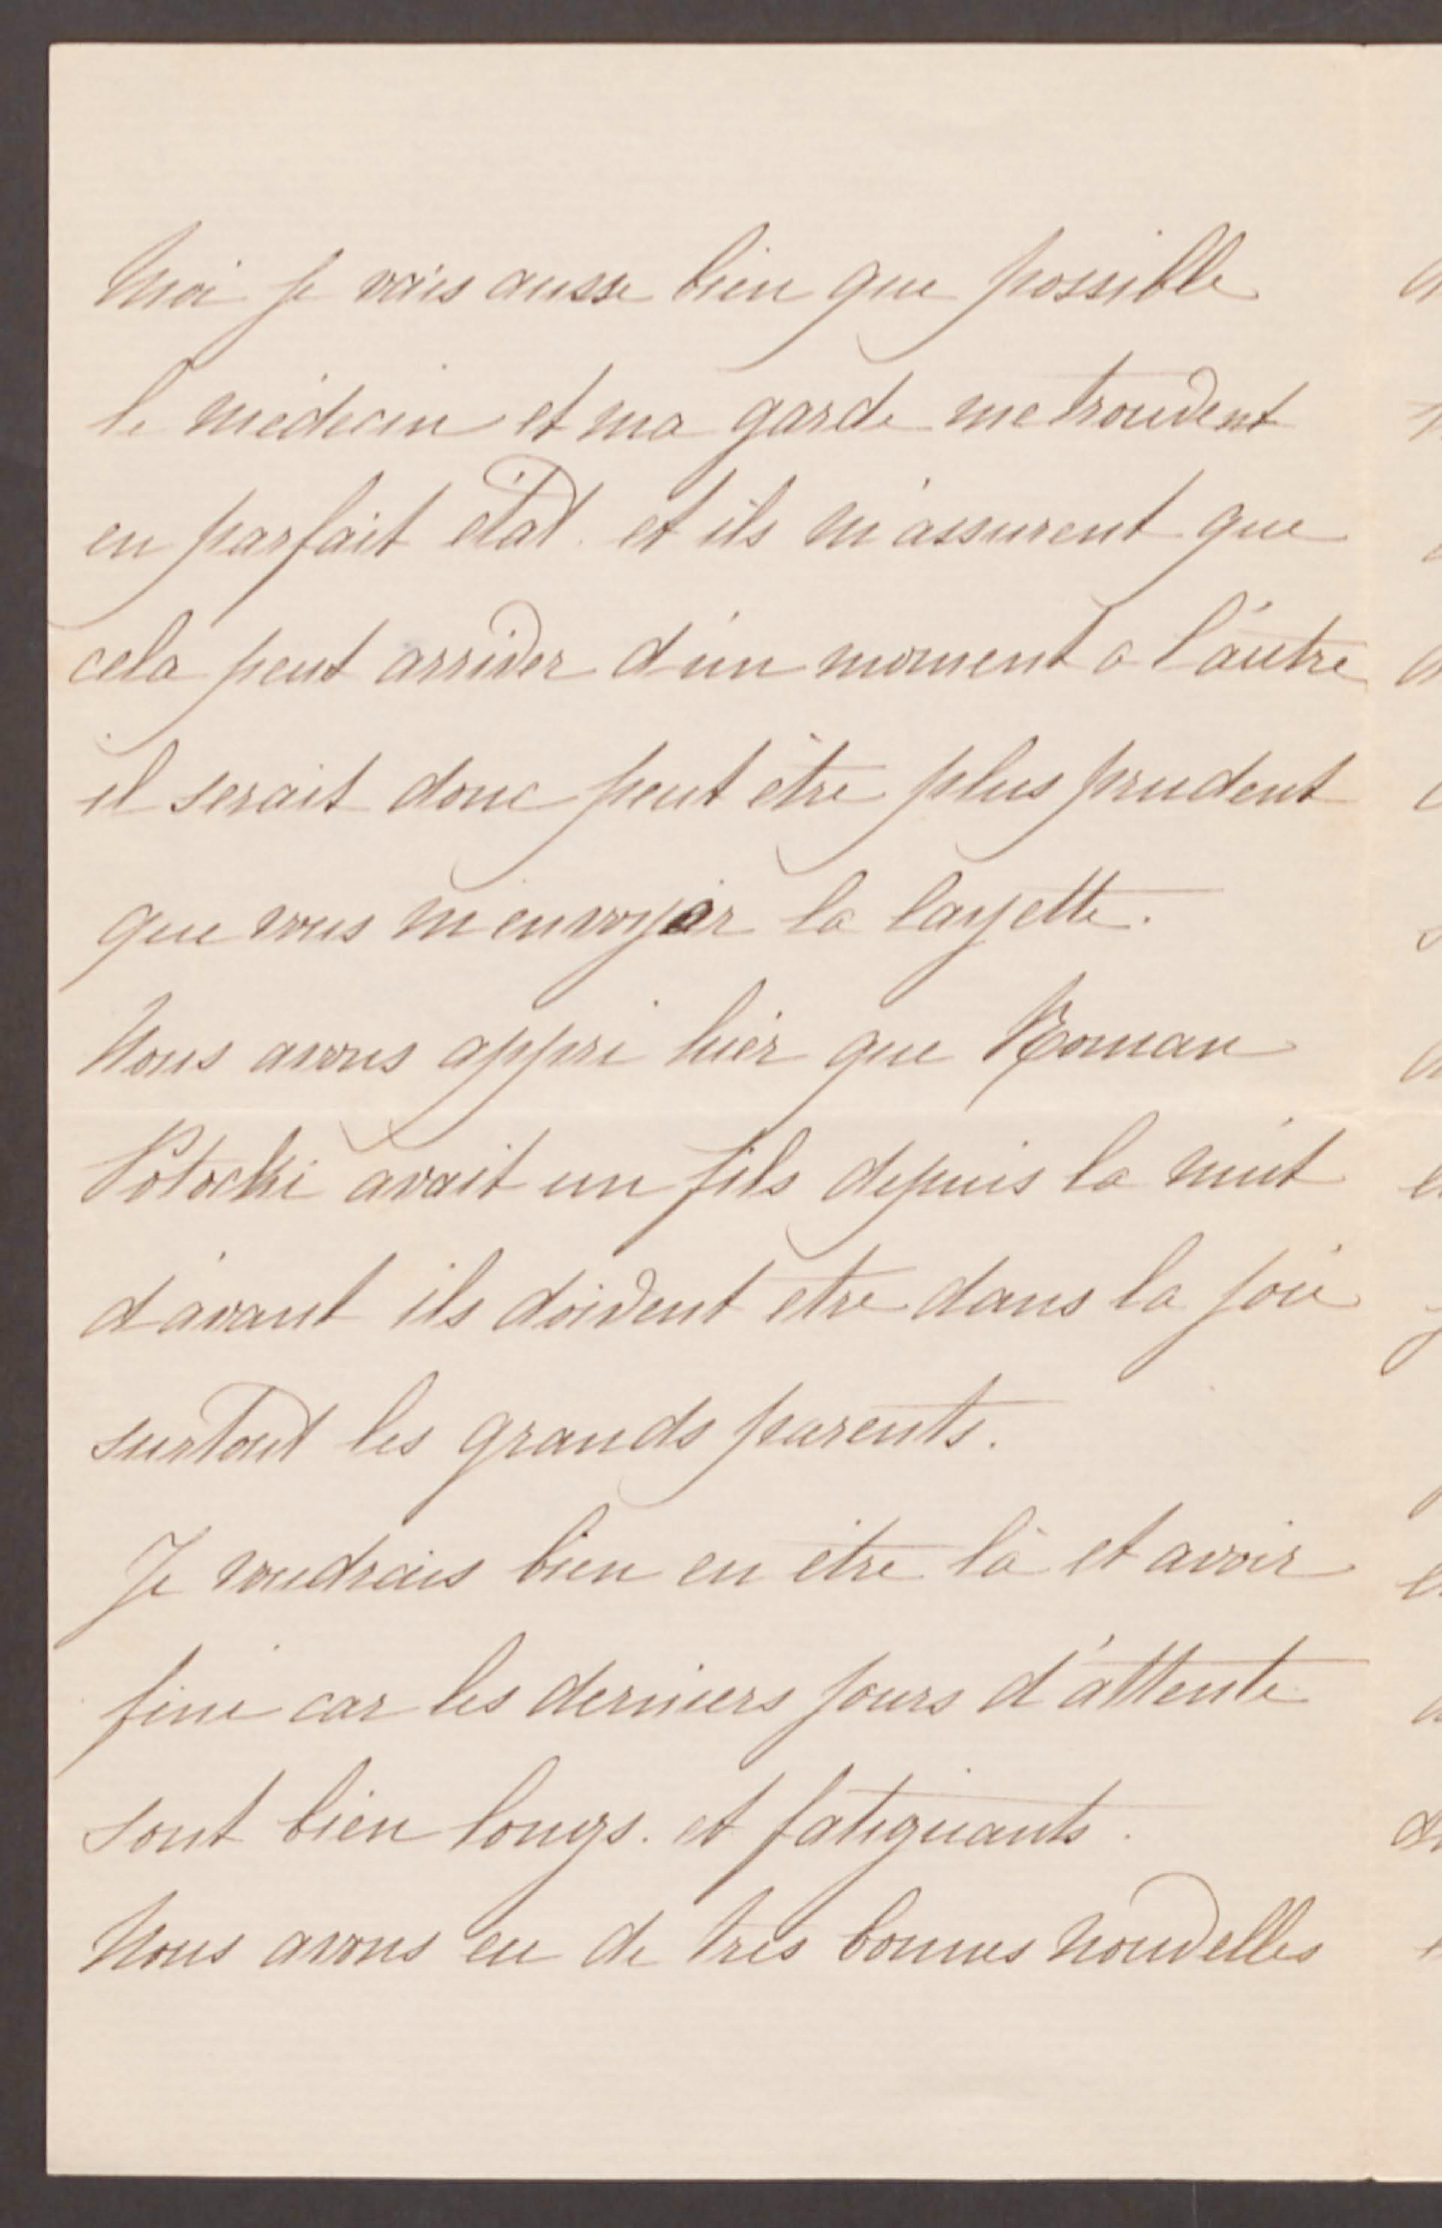 Moi je vais aussi bien que possible
le médecin et ma garde me trouvent
en parfait état et ils m'assurent que
cela peut arriver d'un moment a l'autre
il serait donc peut être plus prudent
que vous m'envoyer la layette.
Nous avons appri hier que Roman
Potocki avait un fils depuis la nuit
d'avant ils doivent etre dans la joie
surtout les grands parents.
Je voudrais bien en être là et avoir
fini car les derniers jours d'attente
sont bien longs. et fatiguants.
Nous avons eu de tres bonnes nouvelles